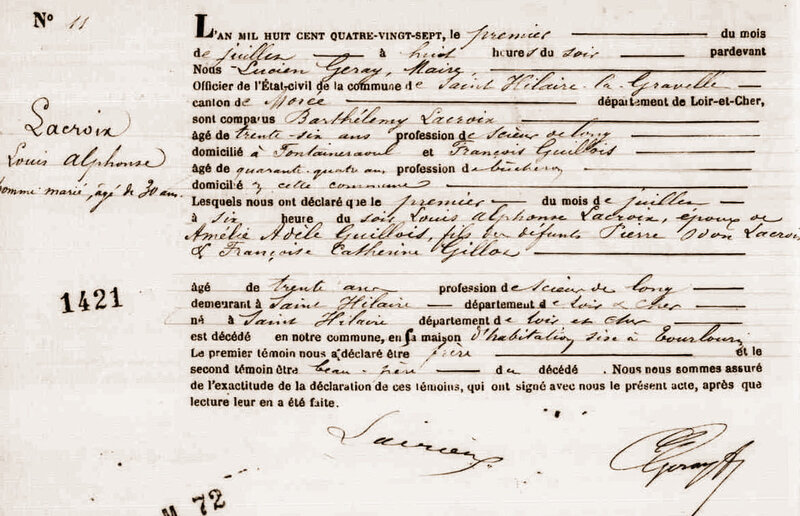 N° 11
Lacroix
Louis Alphonse
homme marié, âgé de 30 ans
1421
L'AN MIL HUIT CENT QUATRE-VINGT-SEPT, le premier du mois
de juillet à huit heures du soir pardevant
Nous Lucien Geray, Maire
Officier de l'État-civil de la commune de Saint Hilaire la Gravelle
canton de Morée département de Loir-et-Cher,
sont comparus Barthélemy Lacroix
âgé de trente-six ans profession de scieur de long
domicilié à Fontaineraoul et François Guillois
âgé de quarante-quatre ans profession de bûcheron
domicilié à cette commune
Lesquels nous ont déclaré que le premier du mois de juillet
à six heure du soir, Louis Alphonse Lacroix, époux de
Amélie Adèle Guillois, fils des défunts Pierre Lacroix
& Françoise Catherine Gillot
âgé de trente ans profession de scieur de long
demeurant à Saint Hilaire département de Loir & Cher
né à Saint Hilaire département de Loir et Cher
est décédé en notre commune, en sa maison d'habitation sise à
Le premier témoin nous a déclaré être frère et le
second témoin être beau-père du décédé. Nous nous sommes assuré
de l'exactitude de la déclaration de ces témoins, qui ont signé avec nous le présent acte, après que
lecture leur en a été faite.
Geray
M 72